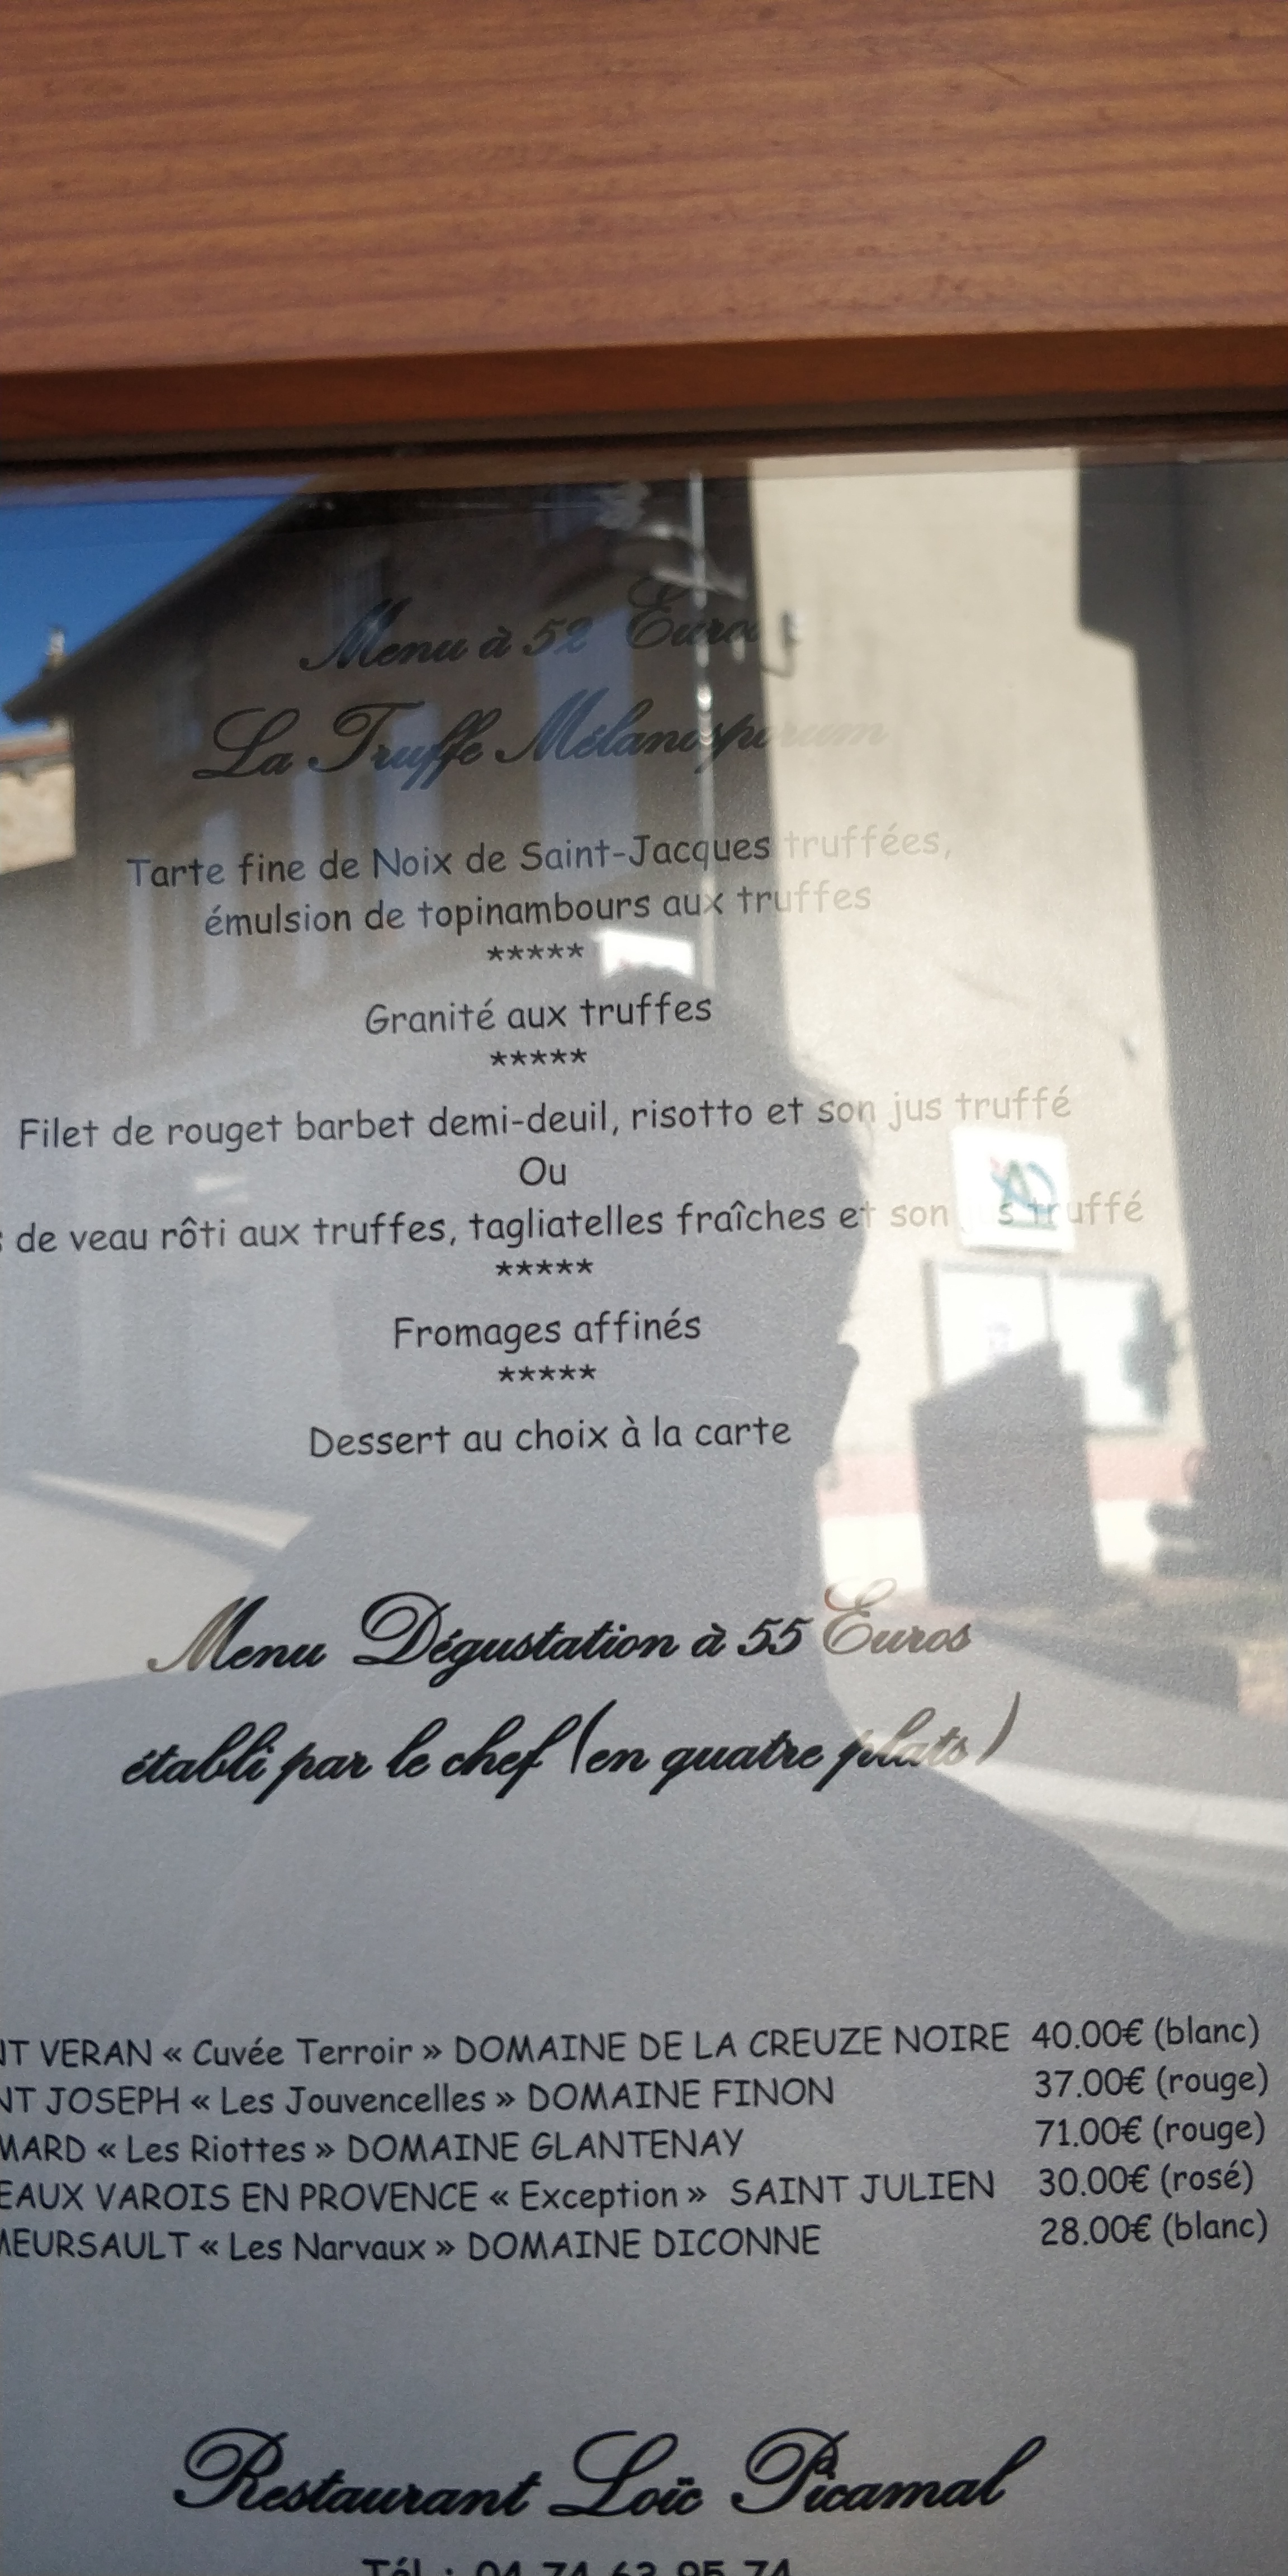 Menu à 52 Euros
La Truffe Mélanosporum
Tarte fine de Noix de Saint-Jacques truffées,
émulsion de topinambours aux truffes
*****
Granité aux truffes
*****
Filet de rouget barbet demi-deuil, risotto et son jus truffé
Ou
de veau rôti aux truffes, tagliatelles fraîches et son jus truffé
*****
Fromages affinés
*****
Dessert au choix à la carte
Menu Dégustation à 55 Euros
établi par le chef (en quatre plats)
NT VERAN « Cuvée Terroir » DOMAINE DE LA CREUZE NOIRE 40.00€ (blanc)
NT JOSEPH « Les Jouvencelles » DOMAINE FINON 37.00€ (rouge)
MARD « Les Riottes » DOMAINE GLANTENAY 71.00€ (rouge)
EAUX VAROIS EN PROVENCE « Exception » SAINT JULIEN 30.00€ (rosé)
MEURSAULT « Les Narvaux » DOMAINE DICONNE 28.00€ (blanc)
Restaurant Loïc Picamal
Tél : 04 74 63 95 74